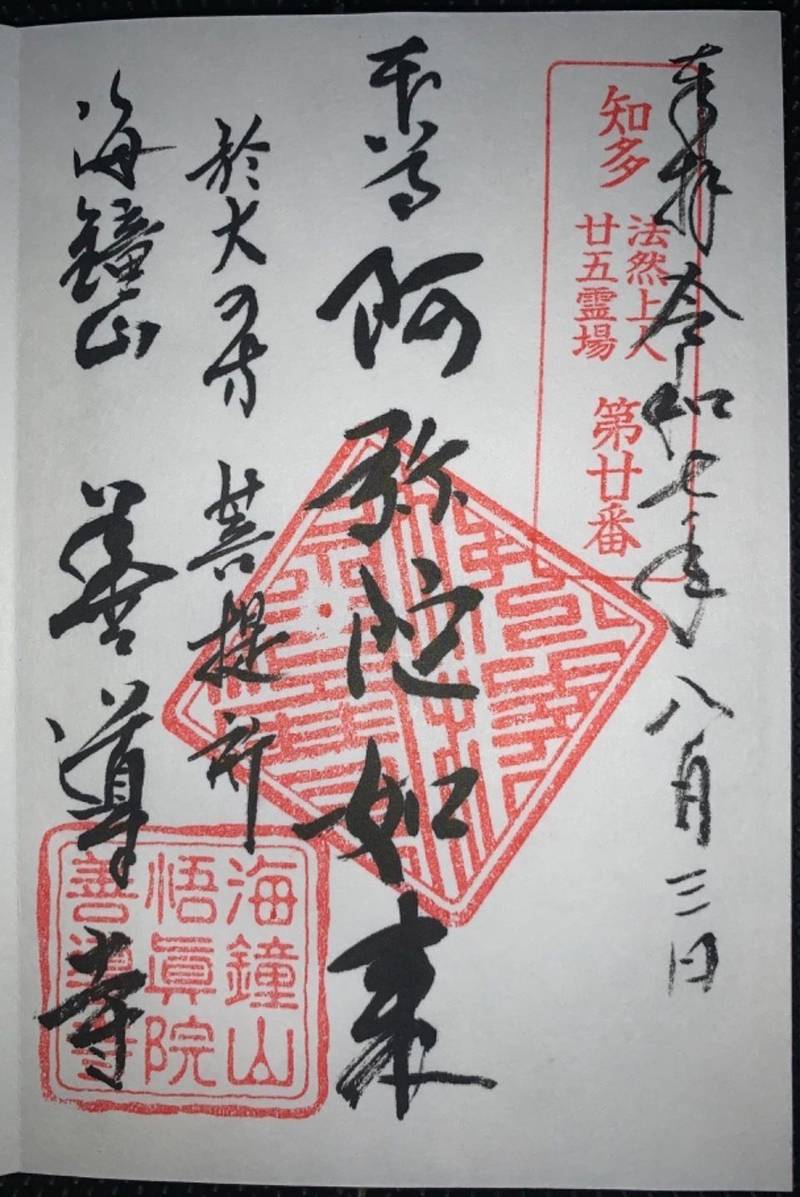 奉拝 令和七年 八月三日
知多
法然上人
廿五霊場
第廿番
本尊 阿弥陀如来
於大の方 菩提所
海鐘山 善導寺
海鐘山
悟眞院
善導寺